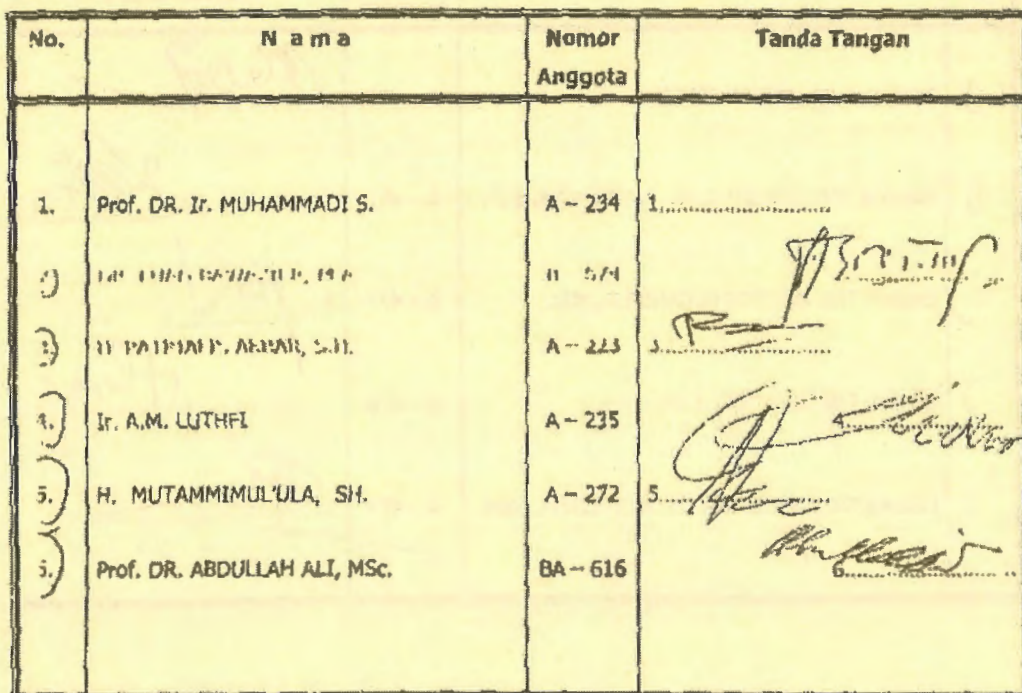 No. N a m a Nomor Anggota Tanda Tangan
1. Prof. DR. Ir. MUHAMMADI S. A - 234 1.
3. AKBAR, S.H. A - 223 3.
4. Ir. A.M. LUTHFI A - 235 4.
5. H. MUTAMMIMUL'ULA, SH. A - 272 5.
Prof. DR. ABDULLAH ALI, MSc. BA - 616 6.